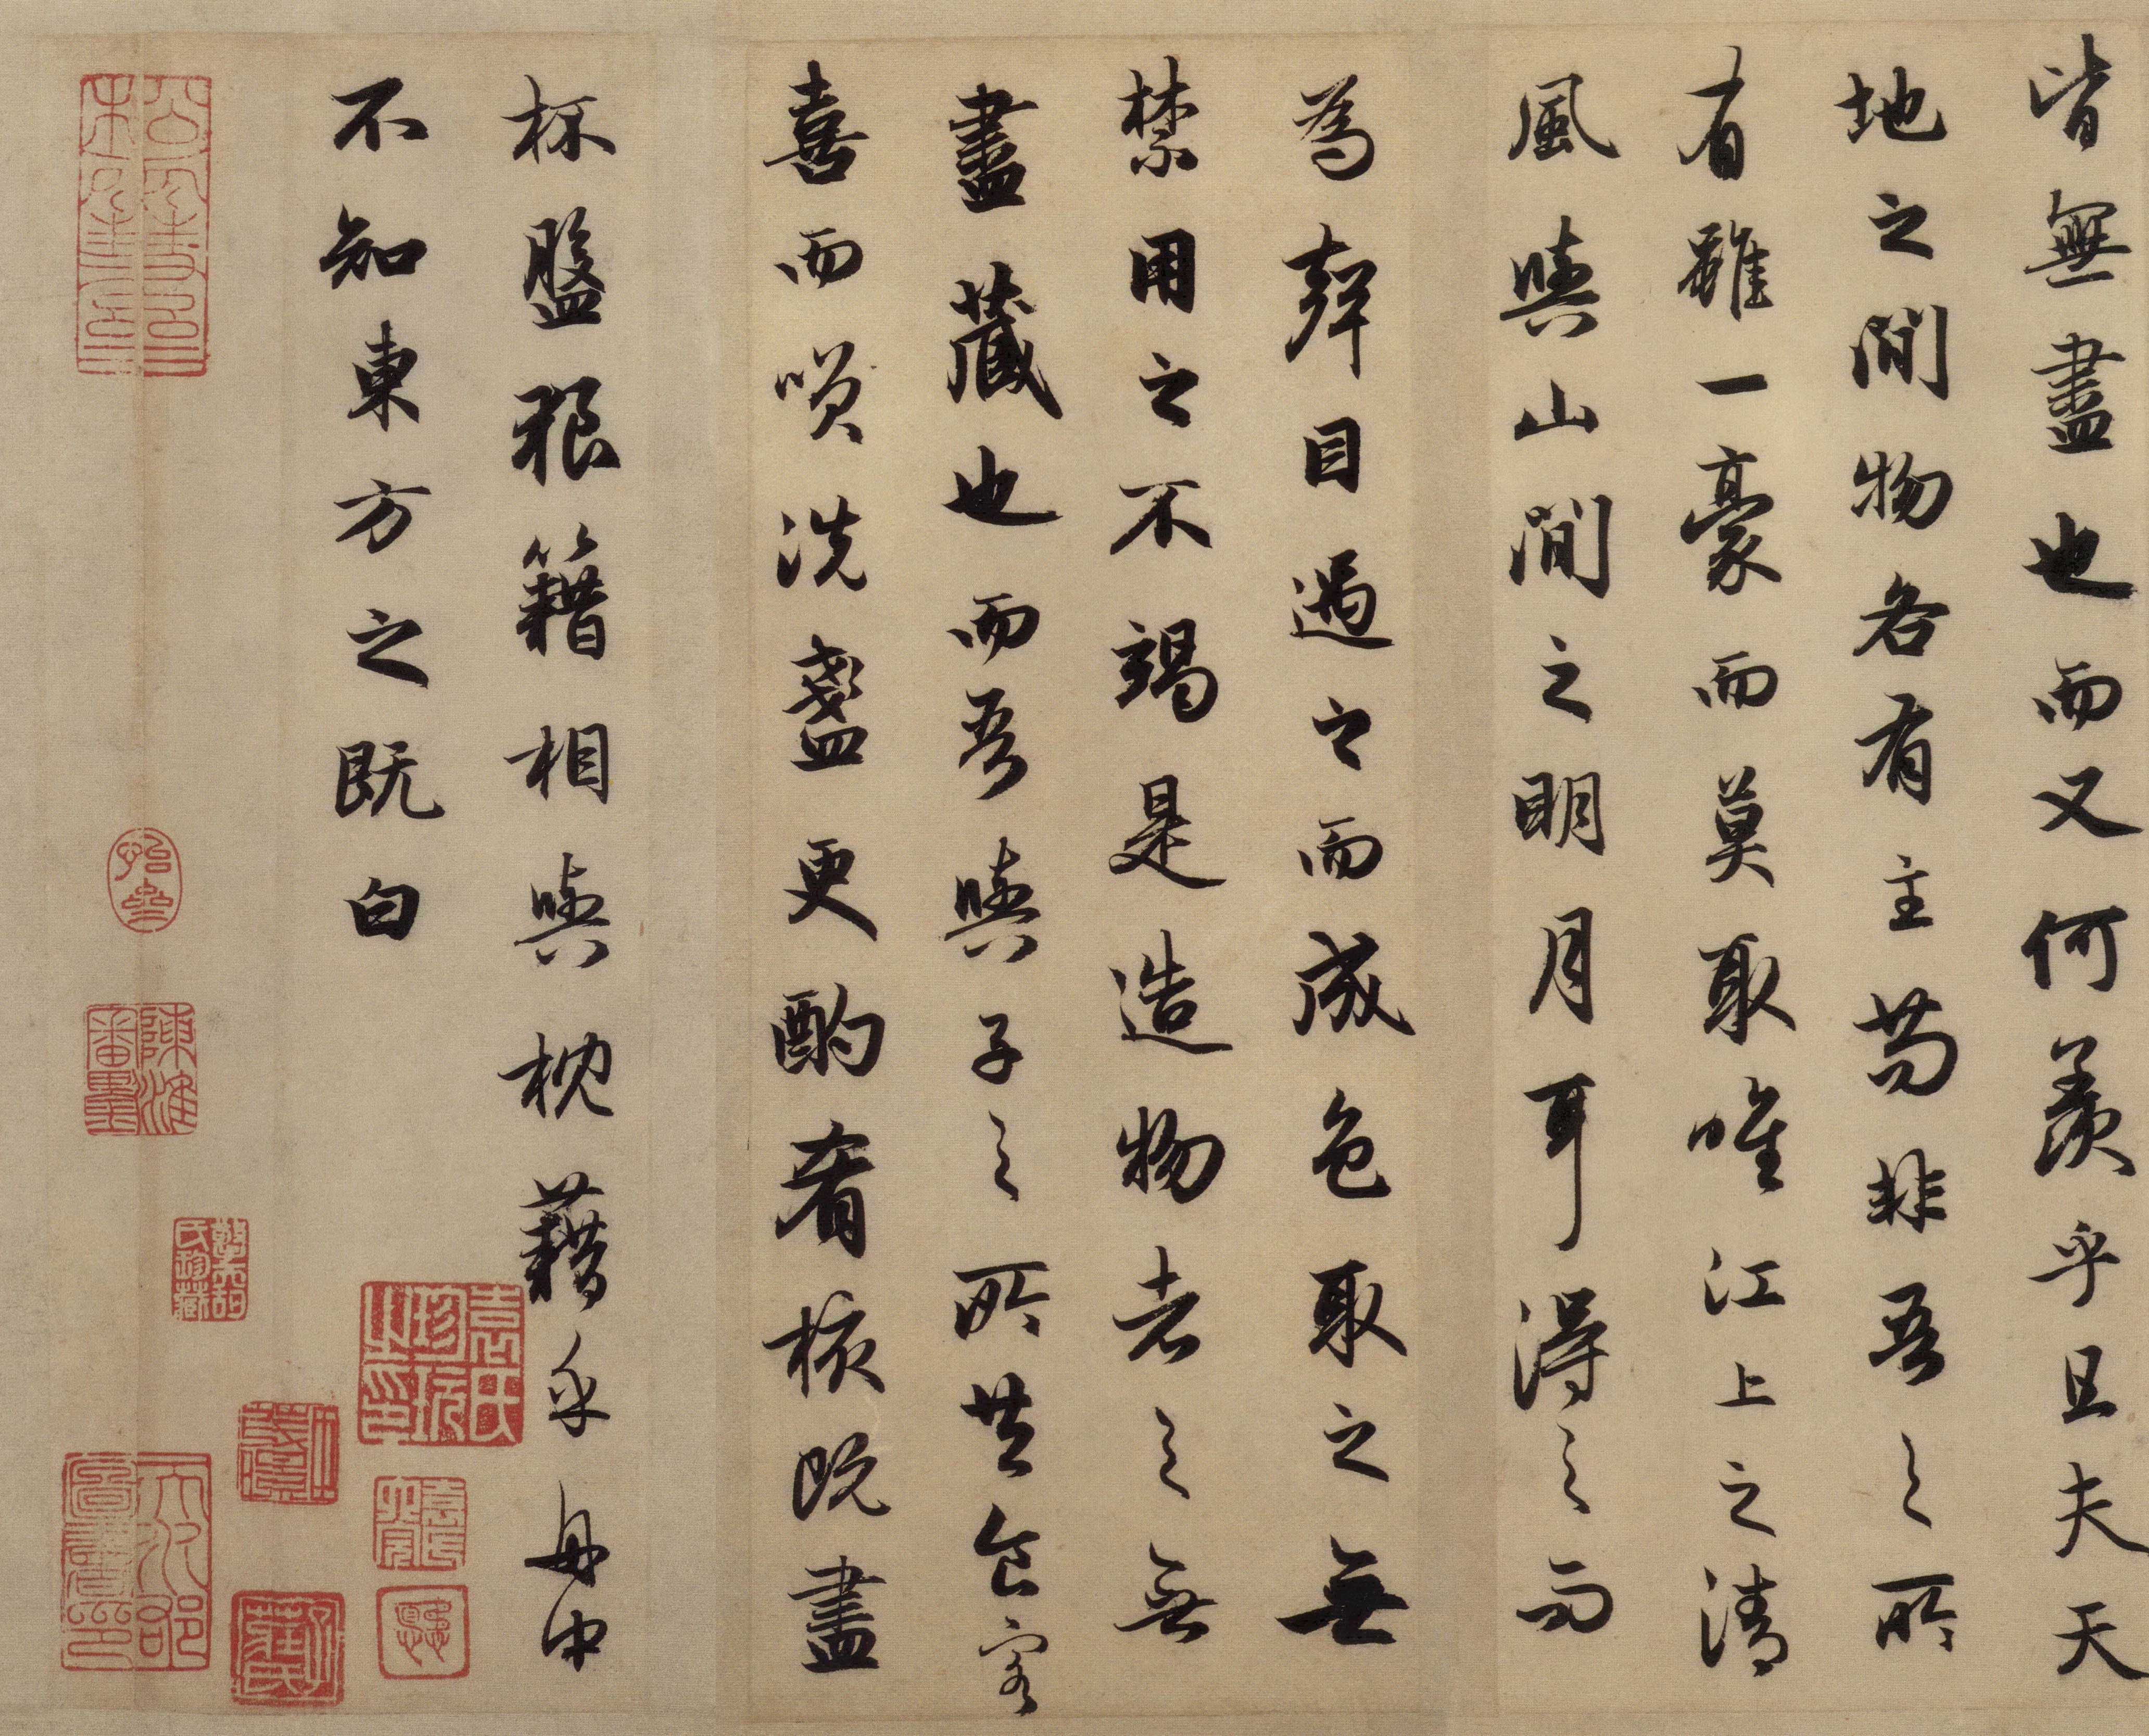 皆無盡也而又何羨乎且夫天
地之間物各有主苟非吾之所
有雖一豪而莫取唯江上之清
風與山間之明月耳得之而
為聲目遇之而成色取之無
禁用之不竭是造物者之無
盡藏也而吾與子之所共食客
喜而咲洗盞更酌肴核既盡
杯盤狼籍相與枕藉乎舟中
不知東方之既白